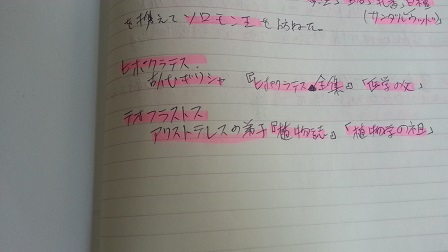 乳香、白檀
(サンダルウッド)
を携えてソロモン王を訪ねた。
ヒポクラテス、
古代ギリシャ 『ヒポクラテス全集』「医学の父」
テオフラストス
アリストテレスの弟子『植物誌』「植物学の祖」